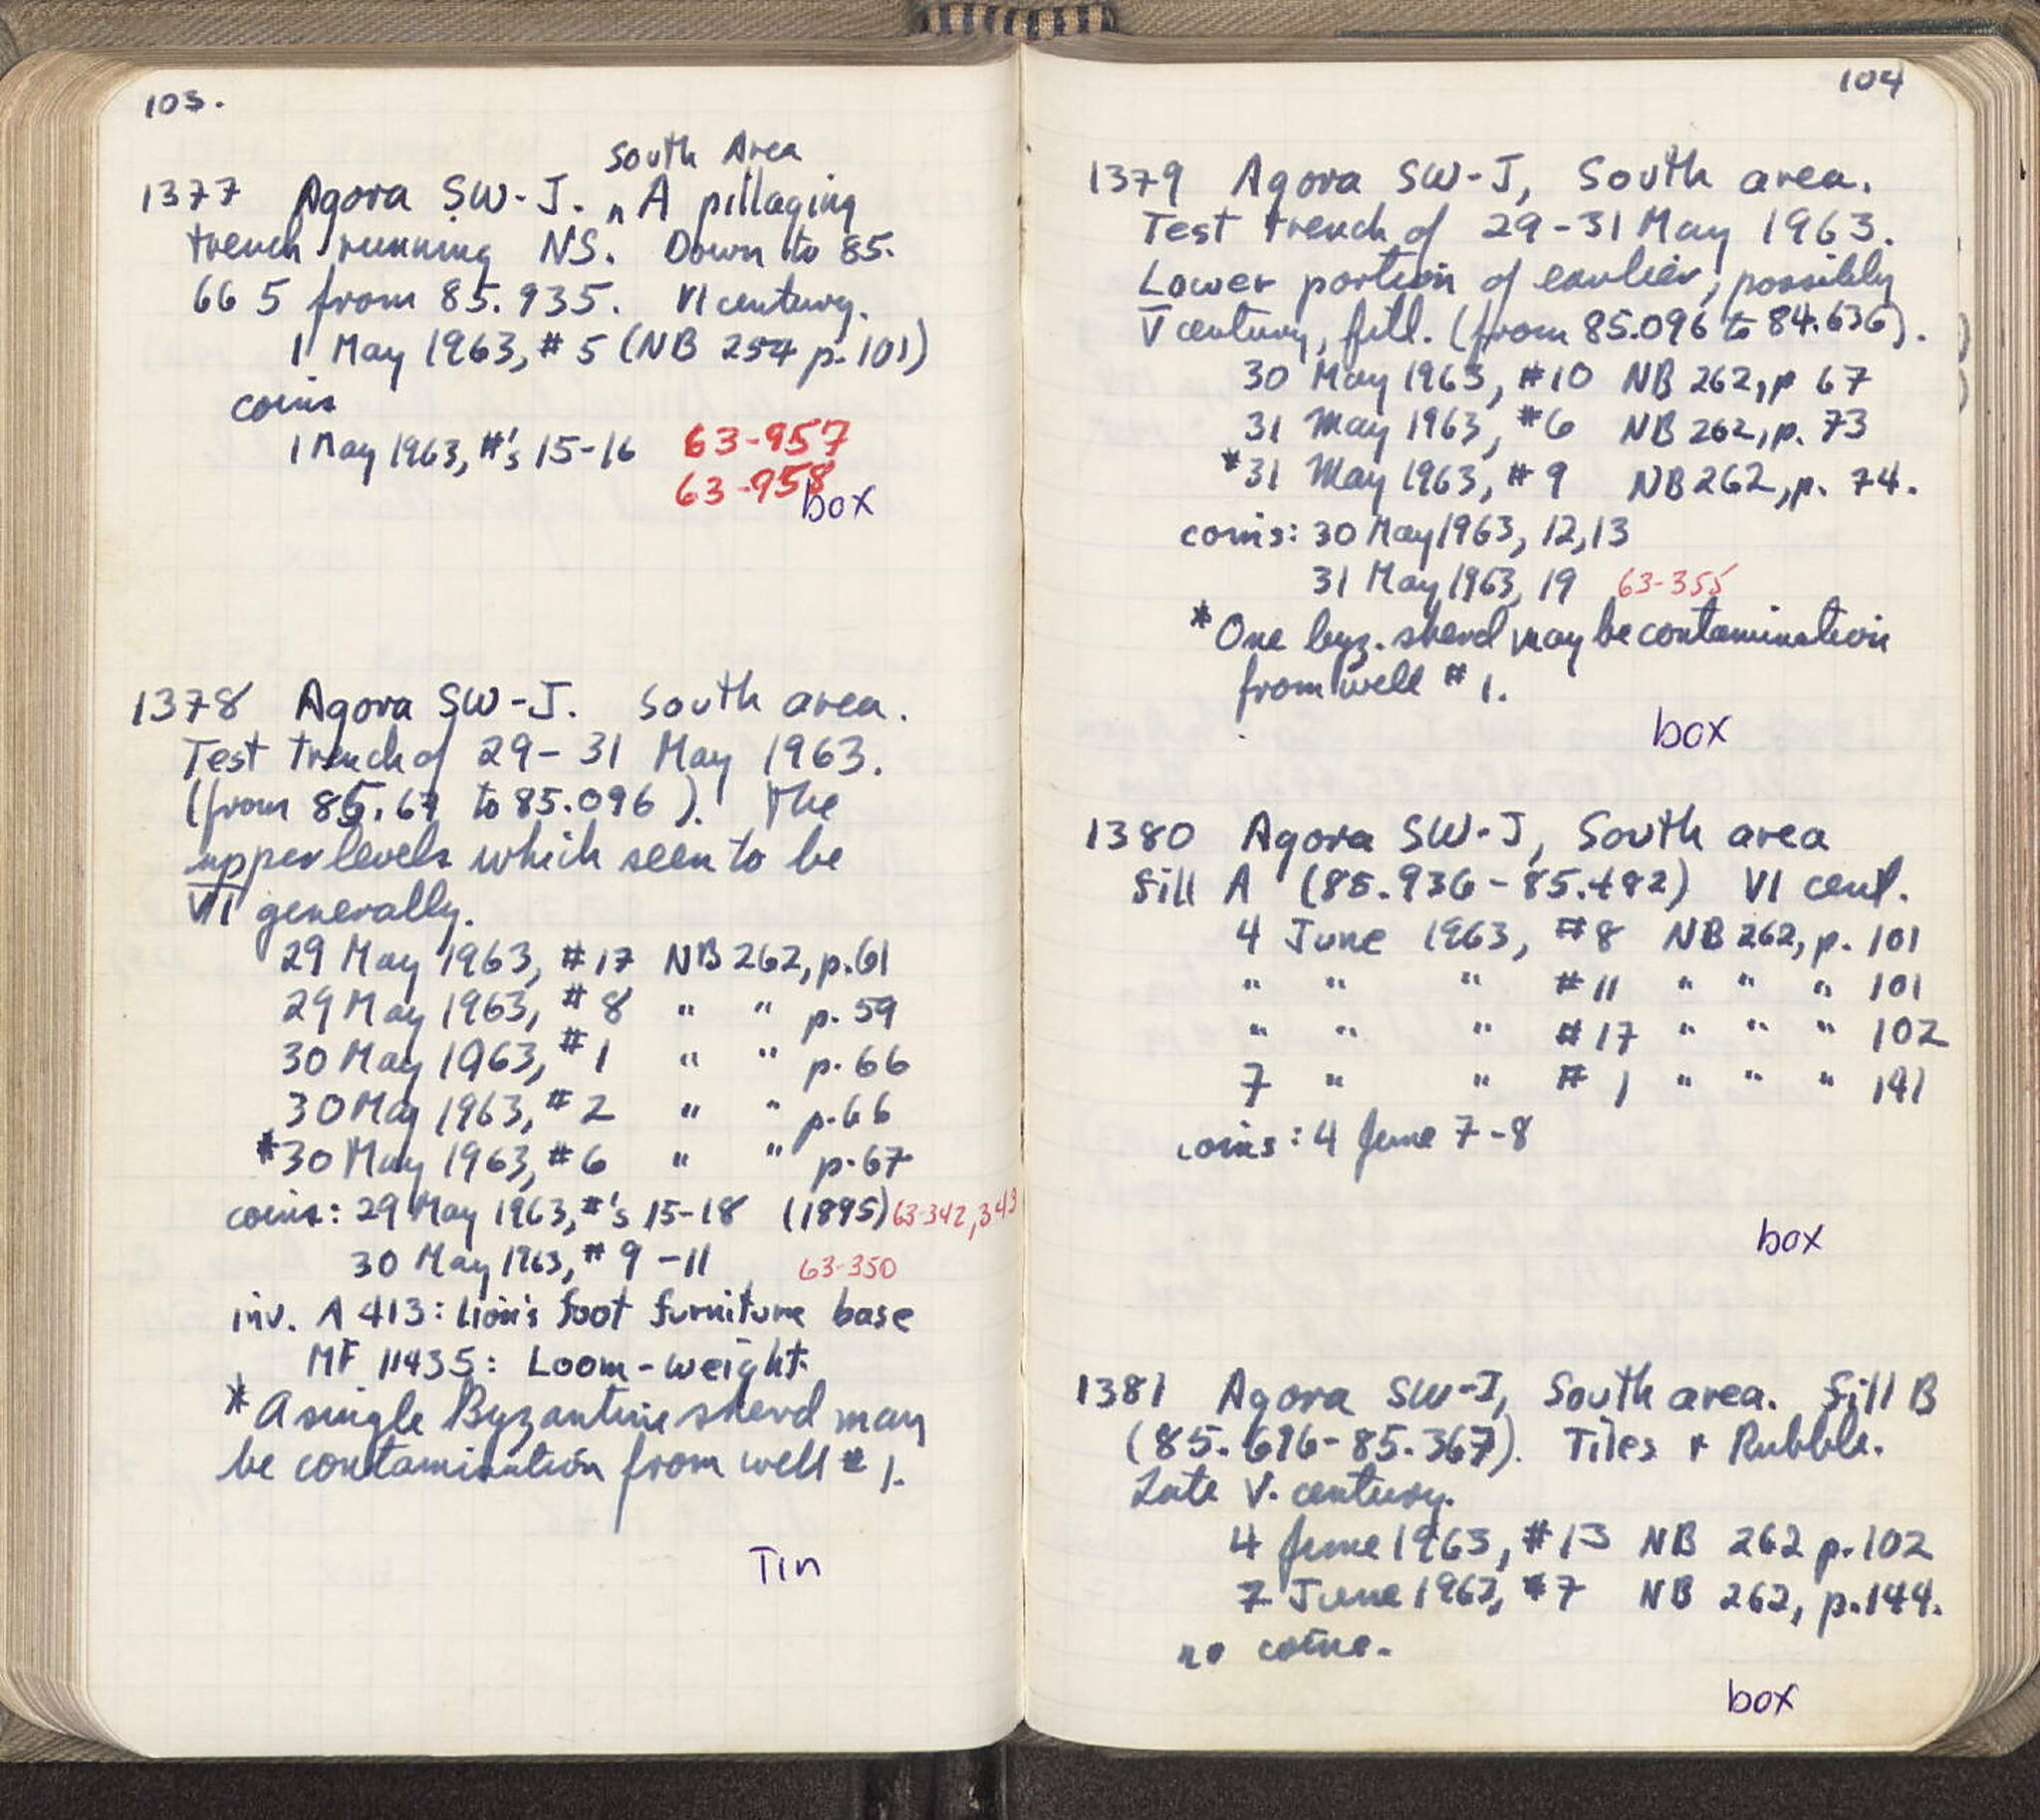 103.
1377 Agora SW-J. South Area A pillaging
trench running NS. Down to 85.
665 from 85.935. VI century.
1 May 1963, #5 (NB 254 p. 101)
coins
1 May 1963, #'s 15-16 63-957
63-958
box
1378 Agora SW-J. South area.
Test trench of 29-31 May 1963.
(from 85.67 to 85.096). The
upper levels which seen to be
VI generally.
29 May 1963, #17 NB 262, p.61
29 May 1963, #8 " " p. 59
30 May 1963, #1 " " p. 66
30 May 1963, #2 " " p. 66
*30 May 1963, #6 " " p. 67
coins: 29 May 1963, #'s 15-18 (1895) 63-342, 343
30 May 1963, #9-11 63-350
inv. A 413: Lion's foot furniture base
MF 11435: Loom-weight.
* A single Byzantine sherd may
be contamination from well #1.
Tin
104
1379 Agora SW-J, South area.
Test trench of 29-31 May 1963.
Lower portion of earlier, possibly
V century, fill. (from 85.096 to 84.636).
30 May 1963, #10 NB 262, p 67
31 May 1963, #6 NB 262, p. 73
*31 May 1963, #9 NB 262, p. 74.
coins: 30 May 1963, 12,13
31 May 1963, 19 63-355
* One byz. sherd may be contamination
from well #1.
box
1380 Agora SW-J, South area
fill A (85.936-85.482) VI cent.
4 June 1963, #8 NB 262, p. 101
" " " #11 " " " 101
" " " #17 " " " 102
7 " " #1 " " " 141
coins: 4 June 7-8
box
1381 Agora SW-J, South area. fill B
(85.696-85.367). Tiles + Rubble.
Late V. century.
4 June 1963, #13 NB 262 p. 102
7 June 1963, #7 NB 262, p. 144.
no coins.
box